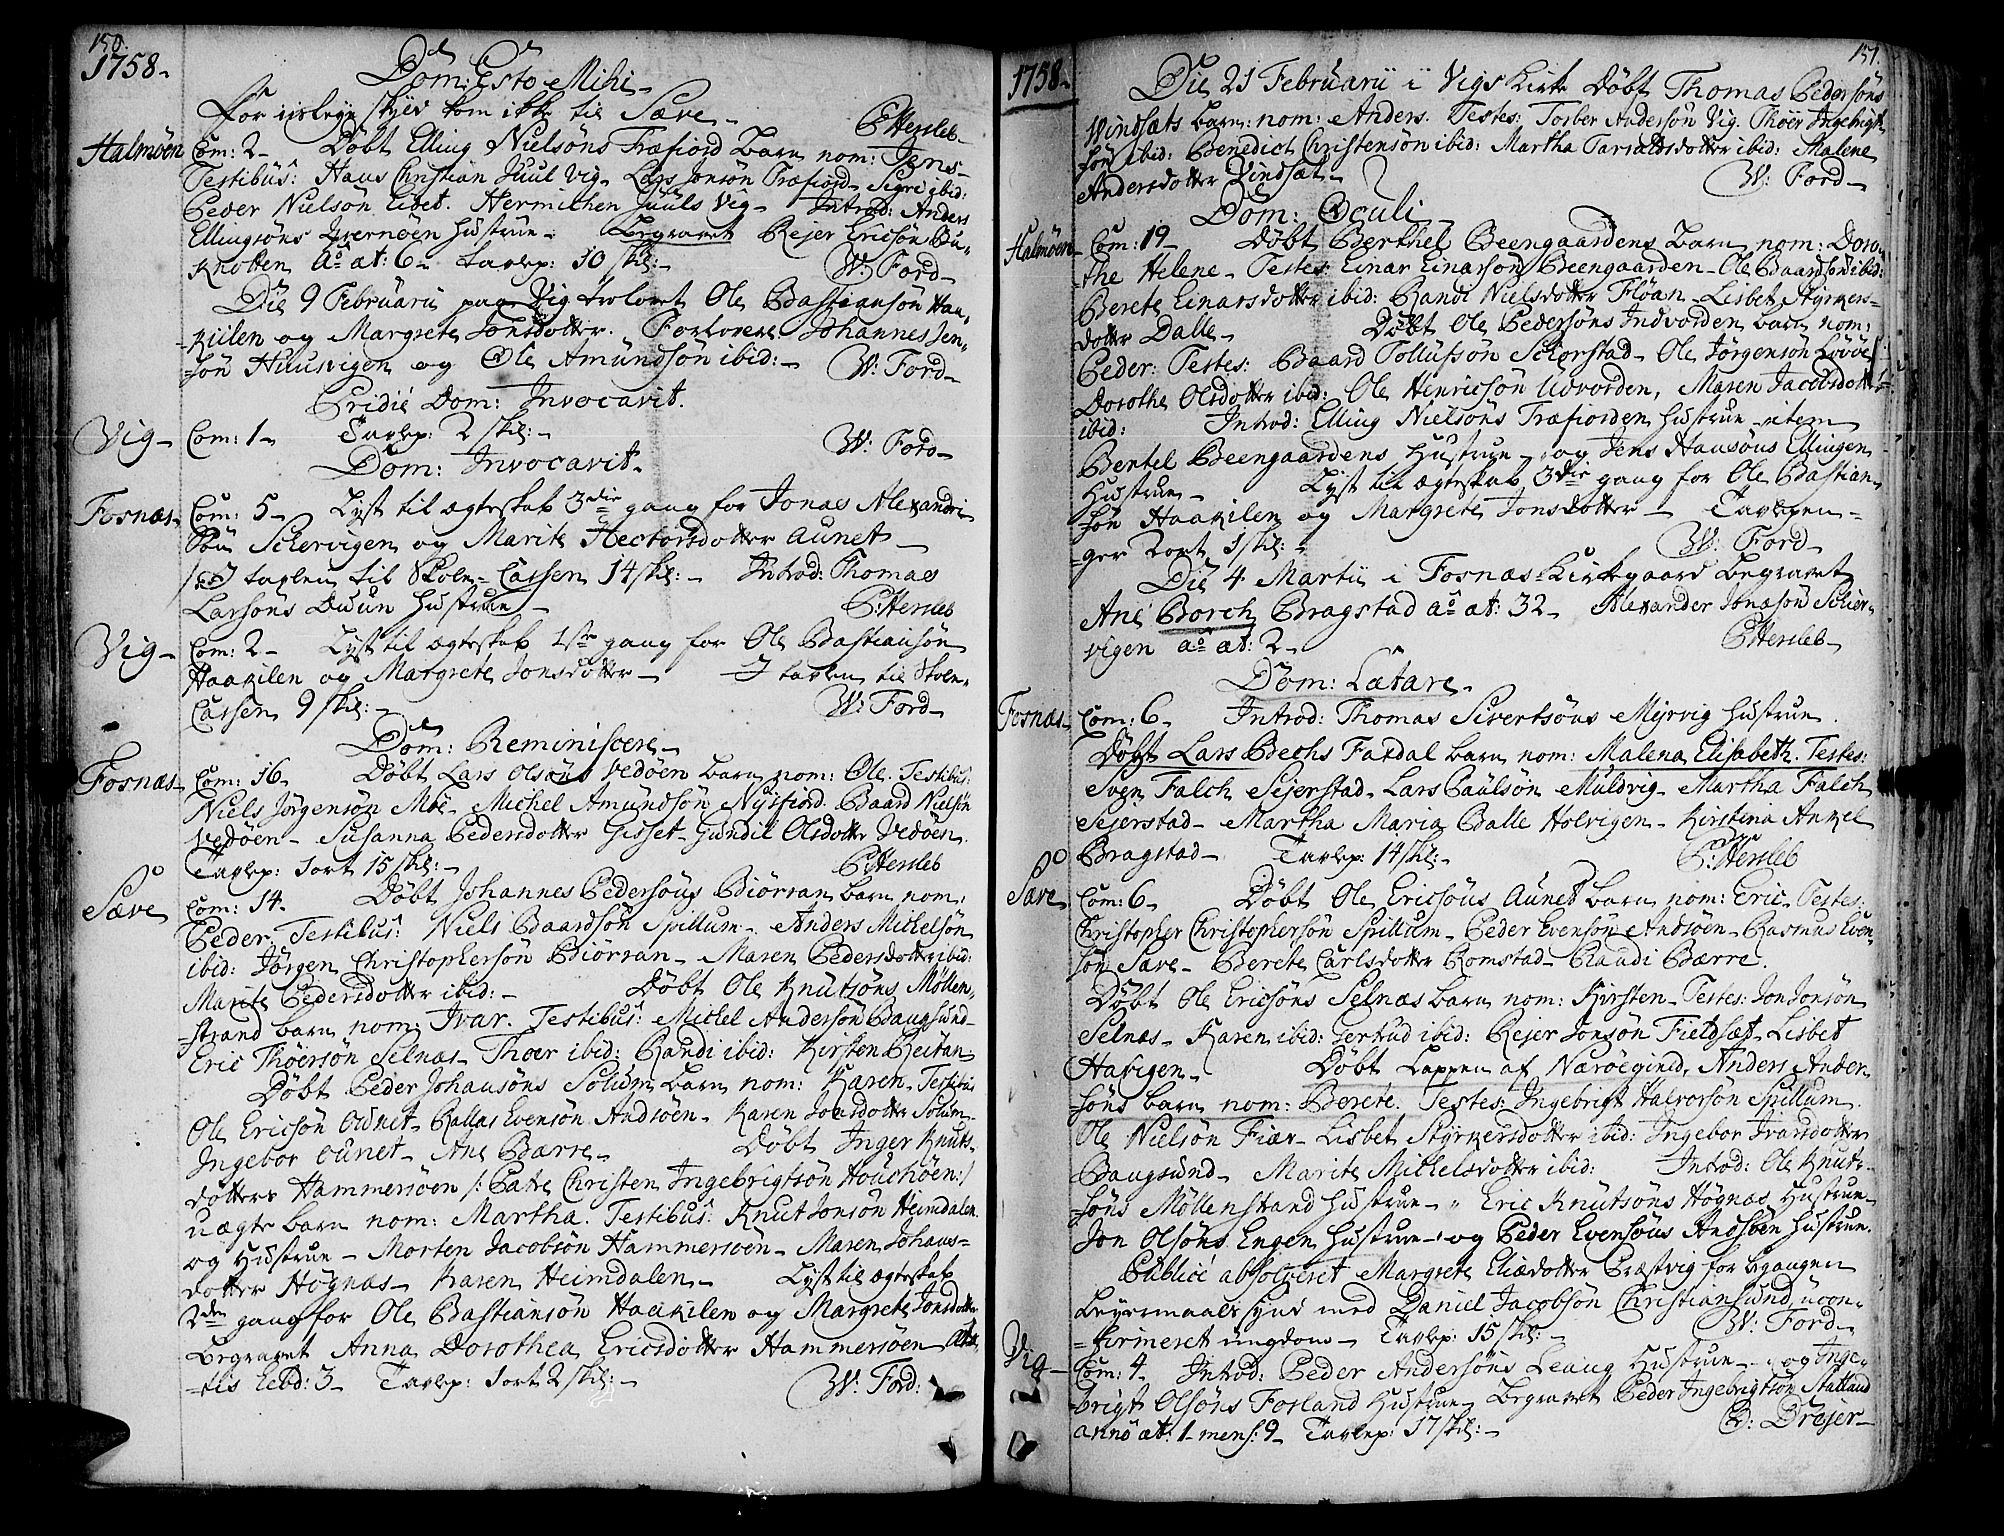 150.
1758-
Dom: Esto Mihi-
For skyld kom ikke til Sæve-
P Hersleb-
Halmöen Com: 2- Döbt Elling Nielsöns Træfiord Barn nom: Jens-
Testibus: Hans Christian Juul Vig- Lars Jonsön Træfiord- Sigri ibid:
Peder Nielsön Hermichen Juuls Vig- Introd: Anders
Ellingsöns Hustrue- Begravet Rejer Ericsöns
Knotten Aö æt: 6- Tavlep: 10 skil:-
W: Ford-
Die 9 Februarii paa Vig trolovet Ole Bastiansön Haa-
kiilen og Margrete Jonsdotter. Forlovere Johannes Jen-
sön Huusvigen og Ole Amundsön ibid:- W: Ford-
Pridie Dom: Invocavit.
Vig- Com: 1- Tavlep: 2 skil:-
W: Ford-
Dom: Invocavit-
Fosnæs- Com: 5- Lyst til ægteskab 3die gang for Jonas Alexandri
Sön Schervigen og Marite Hectorsdotter Aunet-
I tavlen til Skole-Cassen 14 skil:- Introd: Thomas
Larsöns Duun Hustrue-
P: Hersleb
Vig- Com: 2- Lyst til ægteskab 1ste gang for Ole Bastiansön
Haakilen og Margrete Jonsdotter- I tavlen til Skole-
Cassen 9 skil:-
W: Ford-
Dom: Reminiscere-
Fosnæs- Com: 16- Döbt Lars Olsöns Vedöen barn nom: Ole. Testibus:
Niels Jörgensön Moe- Michel Amundsön Nysfiord. Baard Nielsön
Vedöen- Susanna Pedersdotter Gisset- Gundil Olsdotter Vedöen.
Tavlep: sort 15 skil:-
P: Hersleb
Sæve Com: 14- Döbt Johannes Pedersöns Biörran barn nom:
Peder- Testibus: Niels Baardsön Spillum- Anders Michelsön
ibid: Jörgen Christophersön Biörran- Maren Pedersdotter ibid:
Marite Pedersdotter ibid:- Döbt Ole Knutsöns Möllen-
-strand barn nom: Ivar. Testibus: Michel Andersön Baugsund-
Eric Thöersön Selnæs- Thoer ibid: Randi ibid: Kirsten Reitan-
Döbt Peder Johansöns Solum barn nom: Karen- Testibus
Ole Ericsön Oudnet- Rallas Evensön Andsöen- Karen Jonsdotter Solum-
Ingebor Ounet- Ane Bærre- Döbt Inger Knuts-
dotters Hammersöen /: Patre Christen Ingebrigtsön Houchöen:/
uægte barn nom: Martha. Testibus: Knut Jonsön Heimdalen.
og Hustrue- Morten Jacobsön Hammersöen- Maren Johans-
dotter Högnæs- Karen Heimdalen- Lyst til ægteskab
2den gang for Ole Bastiansön Haakilen og Margrete Jonsdotter
Begravet Anna Dorothea Ericsdotter Hammersöen Æta-
tis hebd: 3- Tavlep: sort 2 skil:-
W: Ford:
151.
1758-
Die 21 Februarii i Vigs Kirke Döbt Thomas Pedersöns
Vindsæts barn: nom: Anders. Testes: Torber Andersön Vig. Thöer Ingebrigt-
sön ibid: Benedict Christensön ibid: Martha Tarsaldsdotter ibid: Malene
Andersdotter Vindsæt-
W: Ford-
Dom: Oculi-
Halmöen- Com: 19- Döbt Berthel Beengaardens Barn nom: Doro-
-the Helene- Testes: Einar Einarsön Beengaarden- Ole Baardsön ibid:
Berete Einarsdotter ibid: Randi Nielsdotter Flöan- Lisbet Styrkers-
dotter Dalle- Döbt Ole Pedersöns Indvorden barn nom:
Peder: Testes: Baard Tollufsön Schorstad- Ole Jörgensön Lövöe
Dorothe Olsdotter ibid: Ole Henricsön Udvorden, Maren Jacobsdotter
ibid: Introd: Elling Nielsöns Træfiorden Hustrue- item
Bertel Beengaardens Hustrue- og Jens Hansöns Ellingen
Hustrue- Lyst til ægteskab 3die gang for Ole Bastian-
sön Haakilen og Margrete Jonsdotter- Tavlepen-
-ger Sort 1 skil:-
W: Ford-
Die 4 Martii i Fosnæs Kirkegaard begravet
Ane Borch Bragstad aö æt: 32- Alexander Jonasön Scher-
vigen aö æt: 2-
P Hersleb-
Dom: Lætare-
Fosnæs- Com: 6- Introd: Thomas Sivertsöns Myrvig Hustrue.
Döbt Lars Bechs Fardal barn nom: Malena Elisabeth. Testes:
Sven Falch Sejerstad- Lars Paulsön Muldvig- Martha Falch
Sejerstad- Martha Maria Balle Holvigen- Kirstina Ankel
Bragstad- Tavlep: 14 skil:-
P: Hersleb
Sæve Com: 6- Döbt Ole Ericsöns Aunet barn nom: Eric- Testes:
Christopher Christophersön Spillum- Peder Evensön Andsöen- Rasmus Even-
sön Sæve- Berete Carlsdotter Romstad- Randi Bærre.
Döbt Ole Ericsöns Selnæs barn nom: Kirsten- Testes: Jon Jonsön
Selnæs- Karen ibid: Gertrud ibid: Rejer Jonsön Fieldsæt- Lisbet
Havigen- Döbt Lappen af Næröegield, Anders Ander-
söns barn nom: Berete. Testes: Ingebrigt Halvorsön Spillum.
Ole Nielsön Fiær- Lisbet Styrkersdotter ibid: Ingebor Ivarsdotter
Baugsund- Marite Michelsdotter ibid: Introd: Ole Knut-
söns Möllenstrand Hustrue- Eric Knutsöns Högnæs Hustrue-
Jon Olsöns Engen Hustrue- og Peder Evensöns Andsöen Hustrue.
Publicè absolveret Margrete Eliædotter Præstvig for begangen
Leyermaals synd med Daniel Jacobsön Christiansund ucon-
-firmeret ungdom- Tavlep: 15 skil:-
W: Ford-
Vig- Com: 4- Introd: Peder Andersöns Hustrue- og Inge-
brigt Olsöns Fosland Hustrue- Begravet Peder Ingebrigtsön Statland
anno æt: 1- mens: 9- Tavlep: 17 skil:-
P: Drejer-